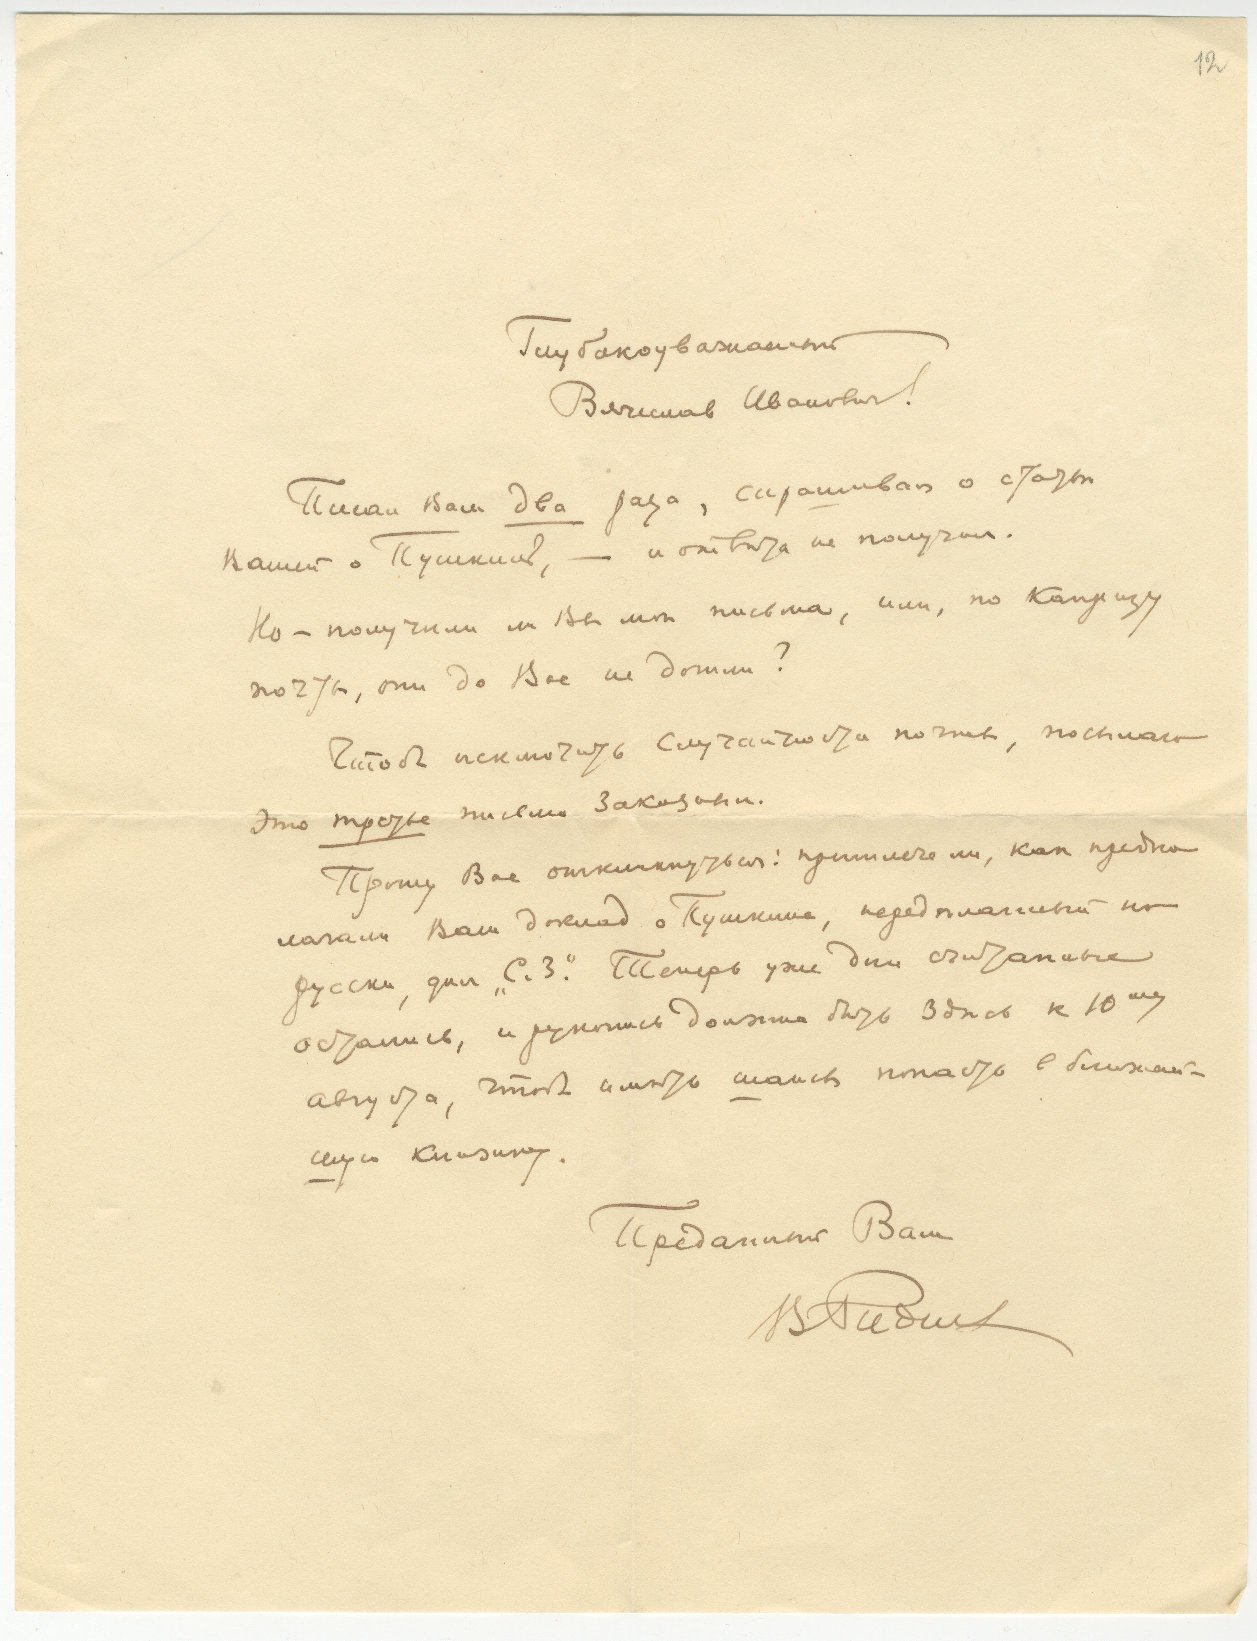 12
Глубокоуважаемый
Вячеслав Иванович!
Писал Вам два раза, спрашивал о статьи
Вашей о Пушкинѣ, — и отвѣта не получил.
Но — получили ли Вы мои письма, или, по капризу
почты, они до Вас не дошли?
Чтобъ исключить случайности почты, посылаю
это третье письмо заказным.
Прошу Вас откликнуться: пришлете ли, как предпо-
лагали Ваш доклад о Пушкине, по-
русски, для „С.З." Теперь уже дни считанные
остались, и рукопись должна быть здѣсь к 10му
августа, чтобъ имѣть шансы попасть в ближай-
шую книжку.
Преданный Вам
В Руднев